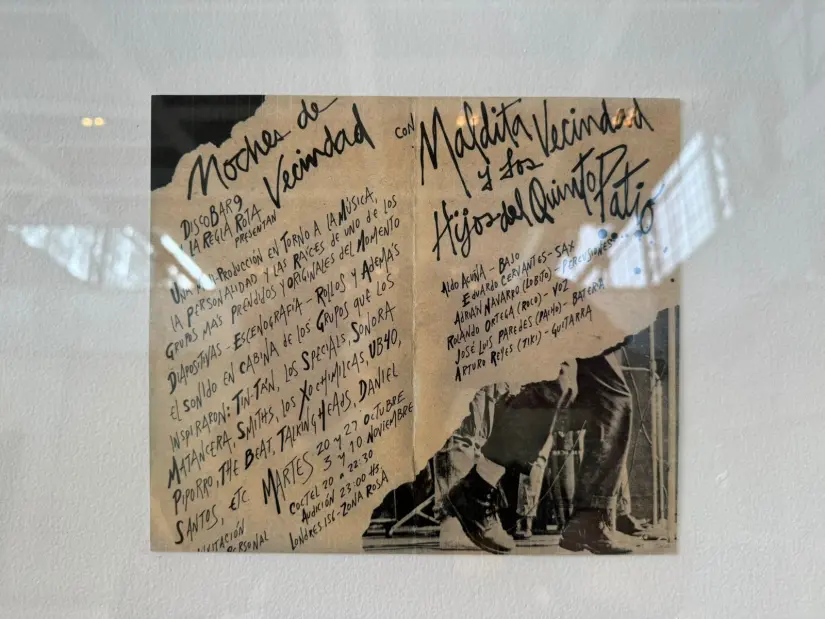 Noches de
Vecindad
DISCOBAR 9
LA REGLA ROTA
PRESENTAN
UNA PRODUCCIÓN EN TORNO A LA MÚSICA,
LA PERSONALIDAD Y LAS RAÍCES DE UNO DE LOS
GRUPOS MAS PRENDIDOS Y ORIGINALES DEL MOMENTO
DIAPOSITIVAS - ESCENOGRAFIA - ROLLOS Y ADEMÁS
EL SONIDO EN CABINA DE LOS GRUPOS QUE LOS
INSPIRARON: TIN-TAN, LOS SPECIALS, SONORA
MATANCERA, SMITHS, LOS XOCHIMILCAS, UB40,
PIPORRO, THE BEAT, TALKING HEADS, DANIEL
SANTOS, ETC.
MARTES 20 y 27 OCTUBRE
3 y 10 NOVIEMBRE
COCTEL 20 a 22:30
AUDICIÓN 23:00 HS.
LONDRES 156 - ZONA ROSA
INVITACIÓN
PERSONAL
CON
Maldita Vecindad
y Los
Hijos del Quinto Patio
ALDO ACUÑA - BAJO
EDUARDO CERVANTES - SAX
ADRIÁN NAVARRO (LOBITO) - PERCUSIONES
ROLANDO ORTEGA (ROCO) - VOZ
JOSÉ LUIS PAREDES (PACHO) - BATERÍA
ARTURO REYES (TIKI) - GUITARRA